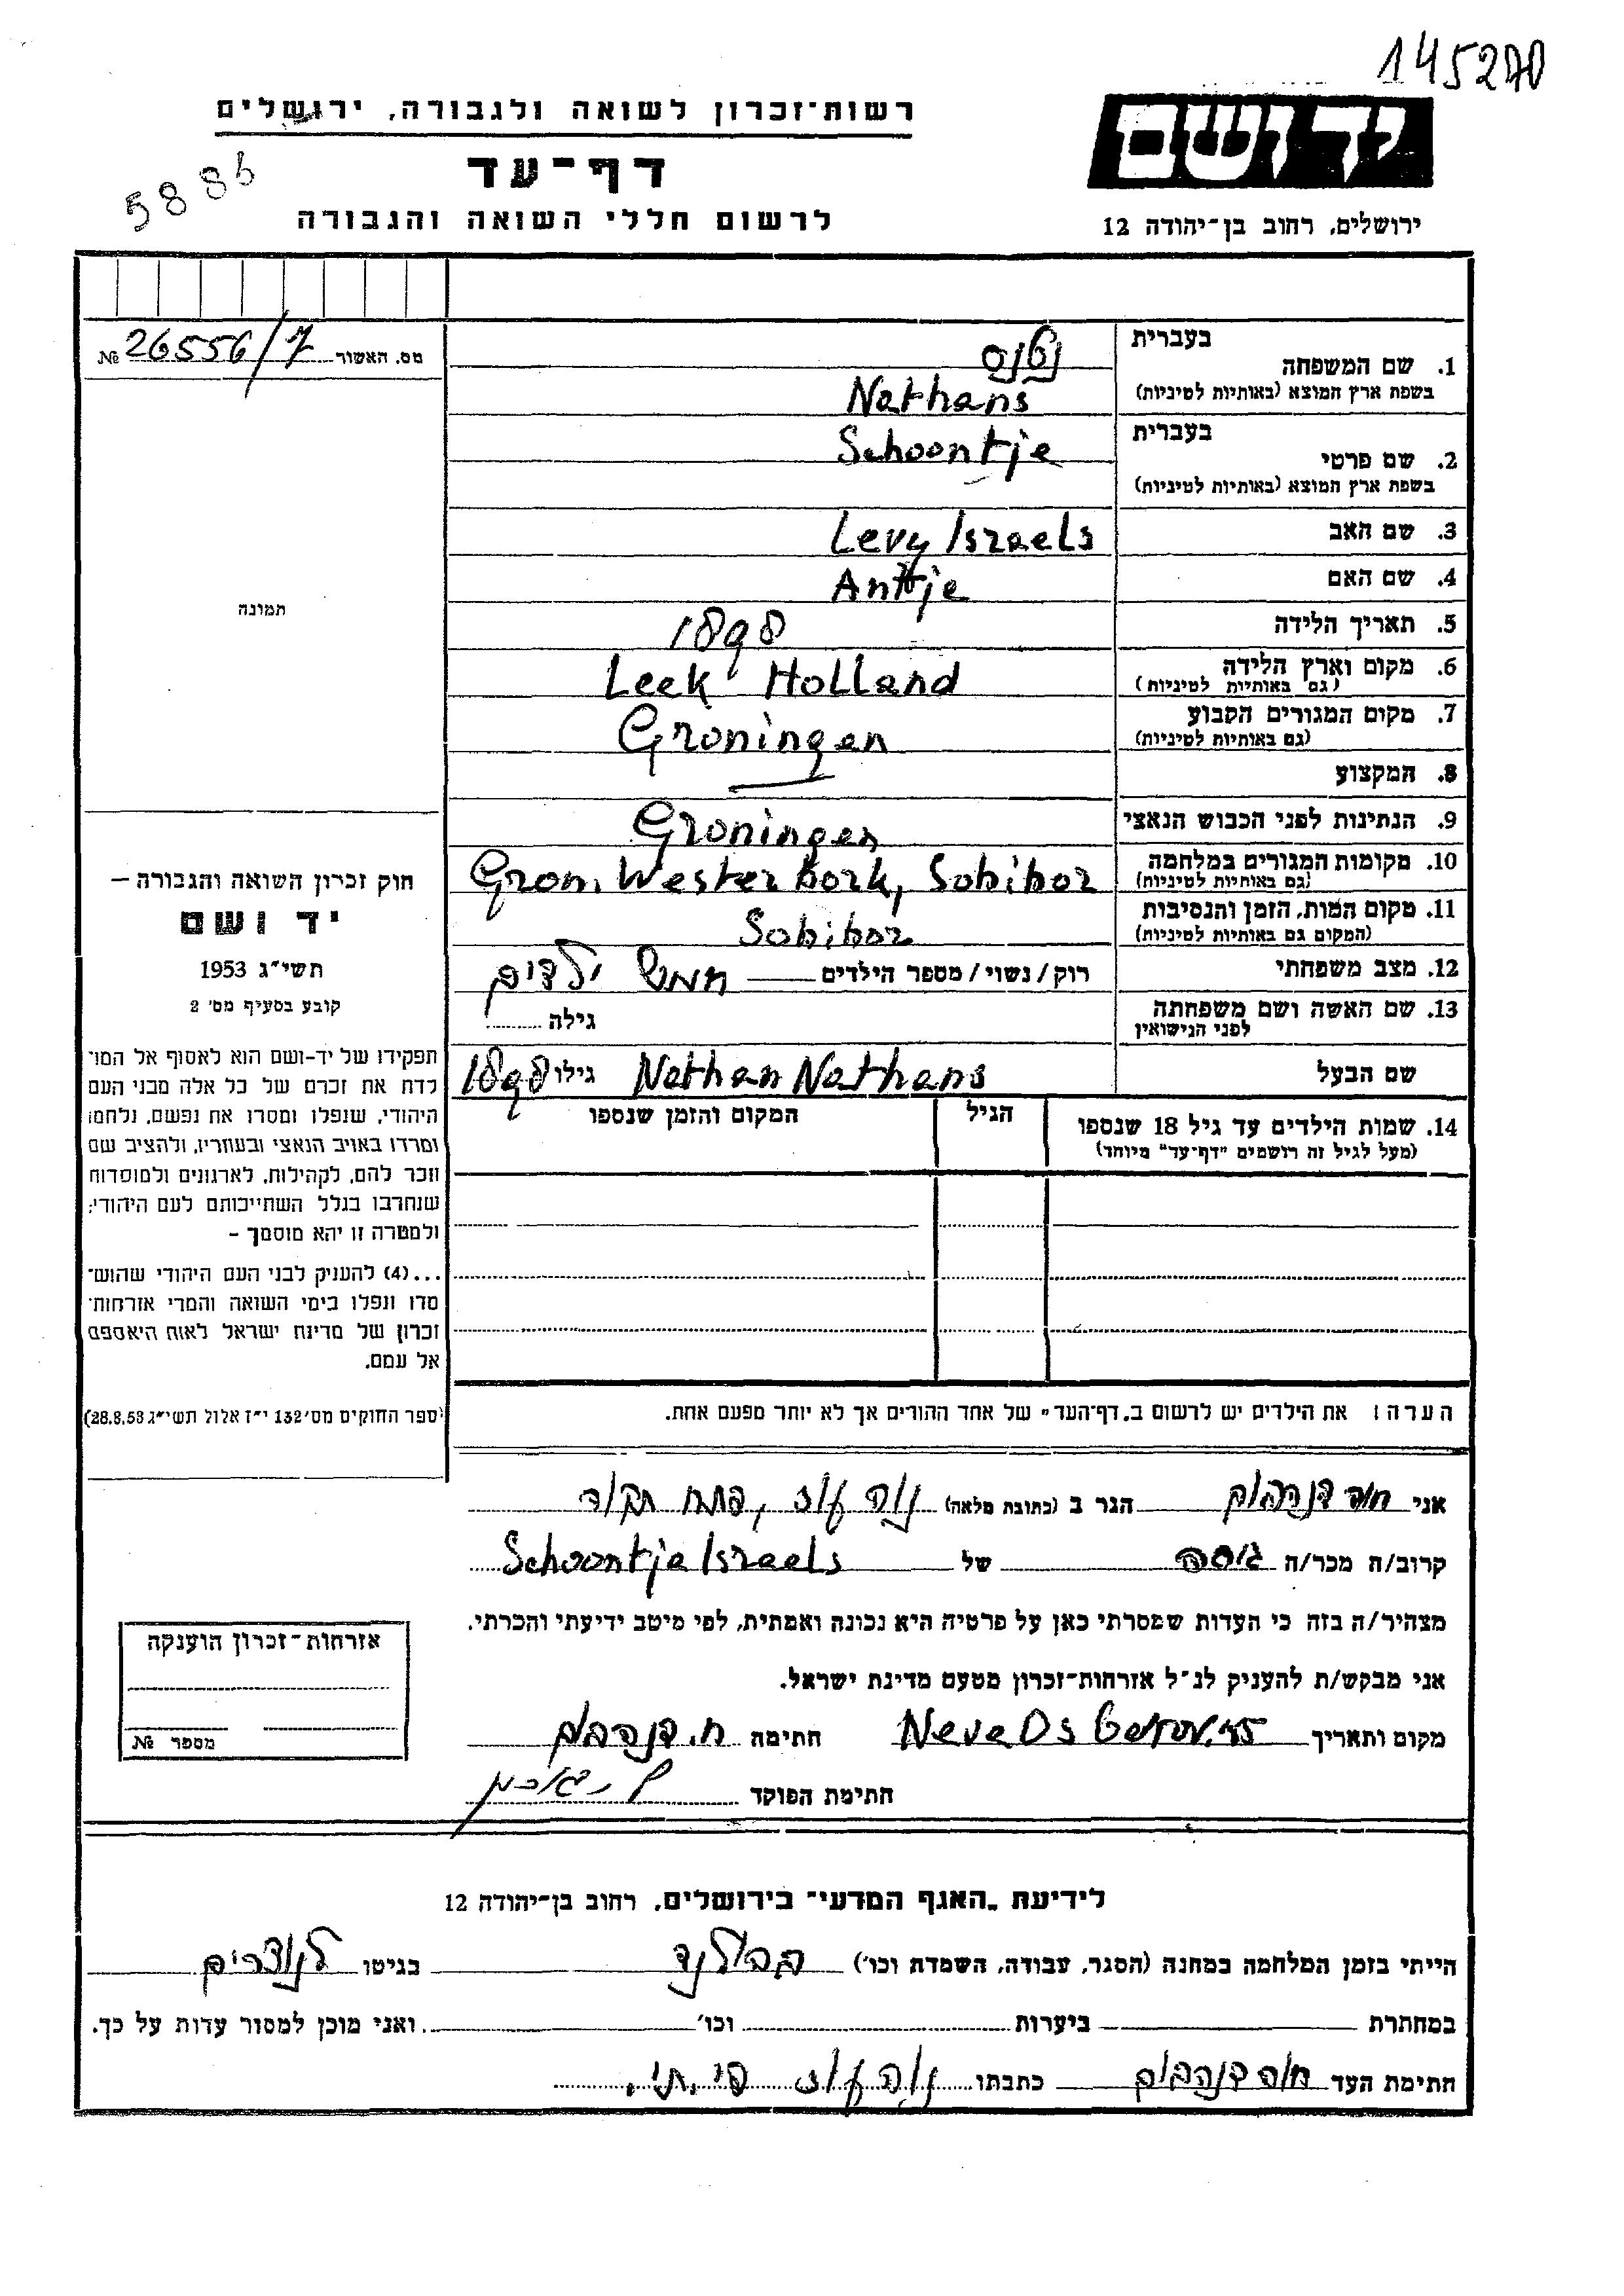 145270
רשות-זכרון לשואה ולגבורה, ירושלים
יד ושם
דף-עד
5886
לרשום חללי השואה והגבורה
ירושלים, רחוב בן-יהודה 12
מס. האשור 26556/7 №
בעברית
נטנס
1. שם המשפחה
בשפת ארץ המוצא (באותיות לטיניות)
Nathans
בעברית
Schoontje
2. שם פרטי
בשפת ארץ המוצא (באותיות לטיניות)
3. שם האב Levy Israels
4. שם האם Anttje
תמונה
5. תאריך הלידה 1898
6. מקום וארץ הלידה Leek Holland
(גם באותיות לטיניות)
7. מקום המגורים הקבוע Groningen
(גם באותיות לטיניות)
8. המקצוע —
9. הנתינות לפני הכבוש הנאצי Groningen
10. מקומות המגורים במלחמה Gron. Westerbork, Sobibor
(גם באותיות לטיניות)
11. מקום המות, הזמן והנסיבות Sobibor
(המקום גם באותיות לטיניות)
12. מצב משפחתי רוק/נשוי/מספר הילדים חמש ילדים
13. שם האשה ושם משפחתה
לפני הנישואין
גילה
שם הבעל Nathan Nathans גילו 1898
14. שמות הילדים עד גיל 18 שנספו
(מעל לגיל זה רושמים "דף-עד" מיוחד)
הגיל
המקום והזמן שנספו
חוק זכרון השואה והגבורה —
יד ושם
תשי"ג 1953
קובע בסעיף מס' 2
תפקידו של יד-ושם הוא לאסוף אל המו-
לדת את זכרם של כל אלה מבני העם
היהודי, שנפלו ומסרו את נפשם, נלחמו
ומרדו באויב הנאצי ובעוזריו, ולהציב שם
וזכר להם, לקהילות, לארגונים ולמוסדות
שנחרבו בגלל השתייכותם לעם היהודי;
ולמטרה זו יהא מוסמך –
...(4) להעניק לבני העם היהודי שהוש-
מדו ונפלו בימי השואה והמרי אזרחות-
זכרון של מדינת ישראל לאות היאספם
אל עמם.
(ספר החוקים מס' 132 י"ז אלול תשי"ג 28.8.53)
הערה: את הילדים יש לרשום ב"דף-העד" של אחד ההורים אך לא יותר מפעם אחת.
אני חוה הגר ב (כתובת מלאה) נוה עוז, פתח תקוה
קרוב/ה מכר/ה גיסה של Schoontje Israels
מצהיר/ה בזה כי העדות שמסרתי כאן על פרטיה היא נכונה ואמתית, לפי מיטב ידיעתי והכרתי.
אני מבקש/ת להעניק לנ"ל אזרחות-זכרון מטעם מדינת ישראל.
מקום ותאריך Neve Os חתימה ח.
חתימת הפוקד
אזרחות-זכרון הוענקה
מספר №
לידיעת "האגף המדעי" בירושלים, רחוב בן-יהודה 12
הייתי בזמן המלחמה במחנה (הסגר, עבודה, השמדה וכו') בגיטו
במחתרת ביערות וכו' ואני מוכן למסור עדות על כך.
חתימת העד חוה כתבתו נוה עוז